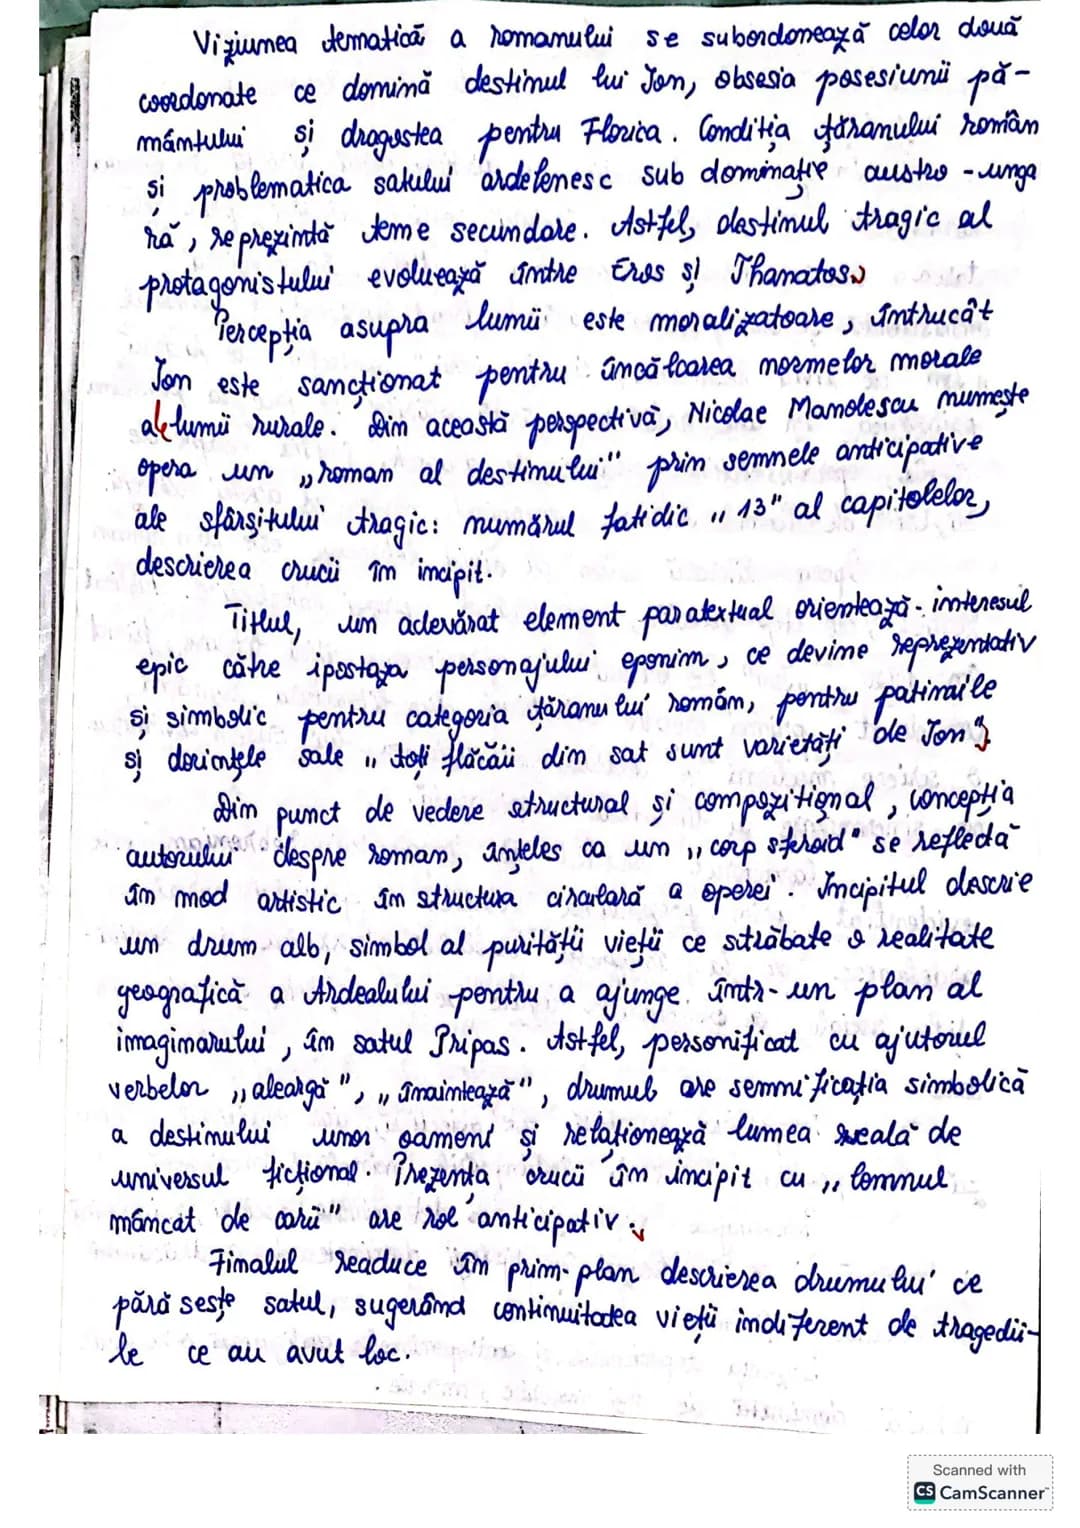 Viziunea tematică a romanului se subordonează celor două
coordonate ce domină destinul lui Ion, obsesia posesiunii pă-
mântului și dragostea pentru Florica. Condiția țăranului român
și problematica satului ardelenesc sub dominație austro-unga
ră, reprezintă teme secundare. Astfel, destinul tragic al
protagonistului evoluează între Eros și Thanatos.
Percepția asupra lumii este moralizatoare, întrucât
Ion este sancționat pentru încălcarea normelor morale
ale lumii rurale. Din această perspectivă, Nicolae Manolescu numește
opera un „roman al destinului" prin semnele anticipative
ale sfârșitului tragic: numărul fatidic „13" al capitolelor,
descrierea crucii în incipit.
Titlul, un adevărat element paratextual orientează interesul
epic către ipostaza personajului eponim, ce devine reprezentativ
și simbolic pentru categoria țăranului român, pentru patimile
și dorințele sale „toți flăcăii din sat sunt varietăți de Ion".
Din punct de vedere structural și compozițional, concepția
autorului despre roman, înțeles ca un „corp sferoid" se reflectă
în mod artistic în structura circulară a operei. Incipitul descrie
un drum alb, simbol al purității vieții ce străbate o realitate
geografică a Ardealului pentru a ajunge într-un plan al
imaginarului, în satul Pripas. Astfel, personificat cu ajutorul
verbelor „aleargă", „înaintează", drumul are semnificația simbolică
a destinului unor oameni și relaționează lumea reală de
universul ficțional. Prezența crucii în incipit cu „lemnul
mâncat de carii" are rol anticipativ.
Finalul readuce în prim-plan descrierea drumului ce
părăsește satul, sugerând continuitatea vieții indiferent de tragedii-
le ce au avut loc.
Scanned with
CS CamScanner